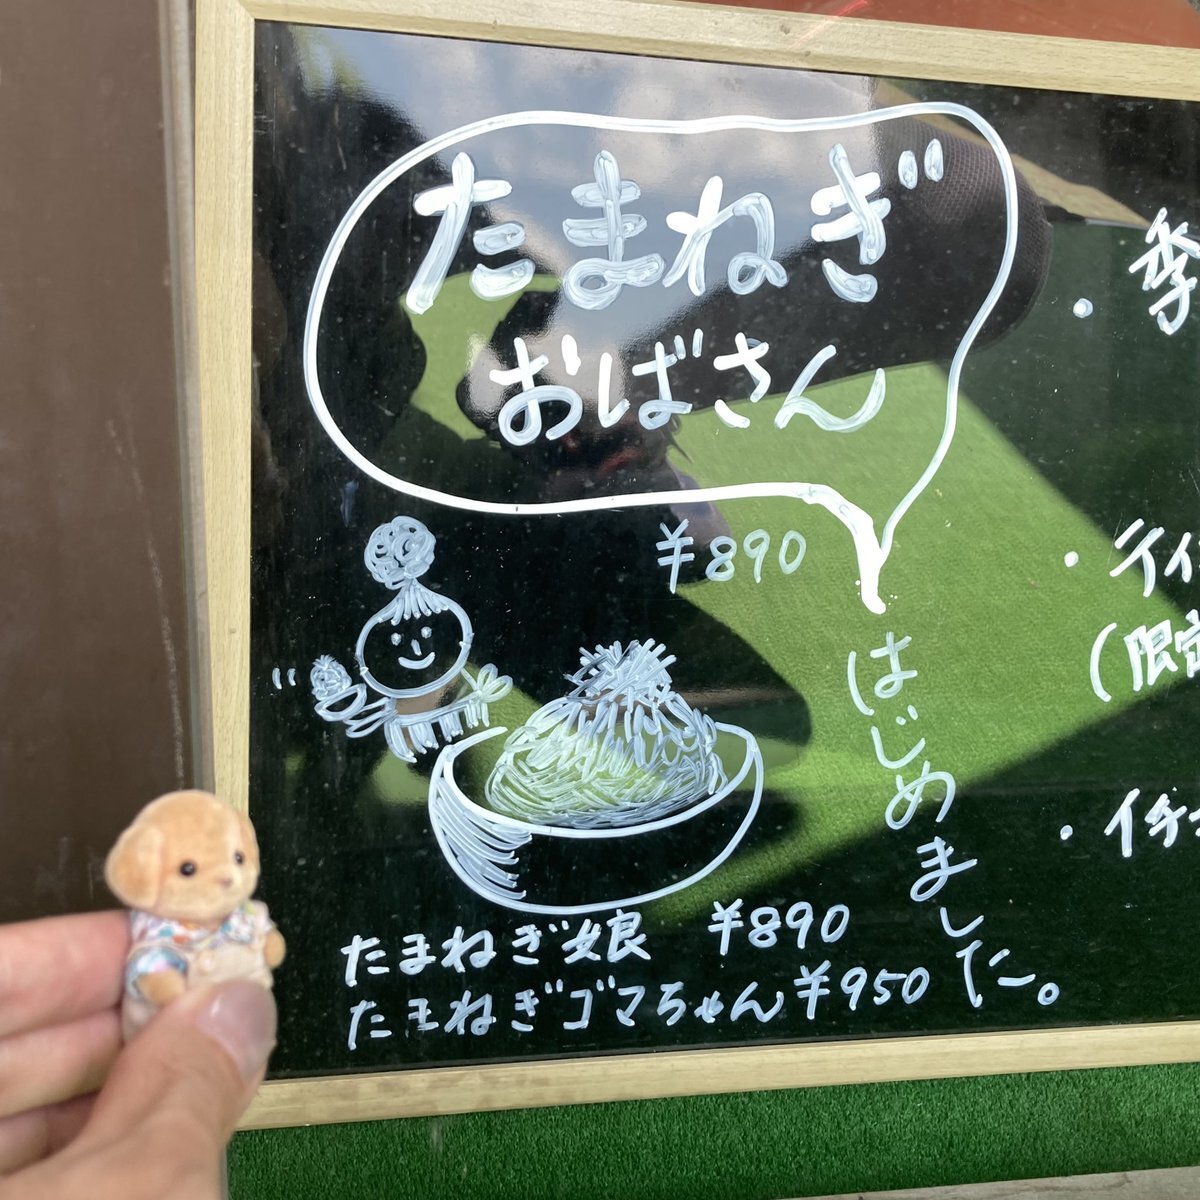 たまねぎ
おばさん
¥890
はじめました。
たまねぎ娘 ¥890
たまねぎゴマちゃん ¥950
・季
・ティ
(限定
・イチ